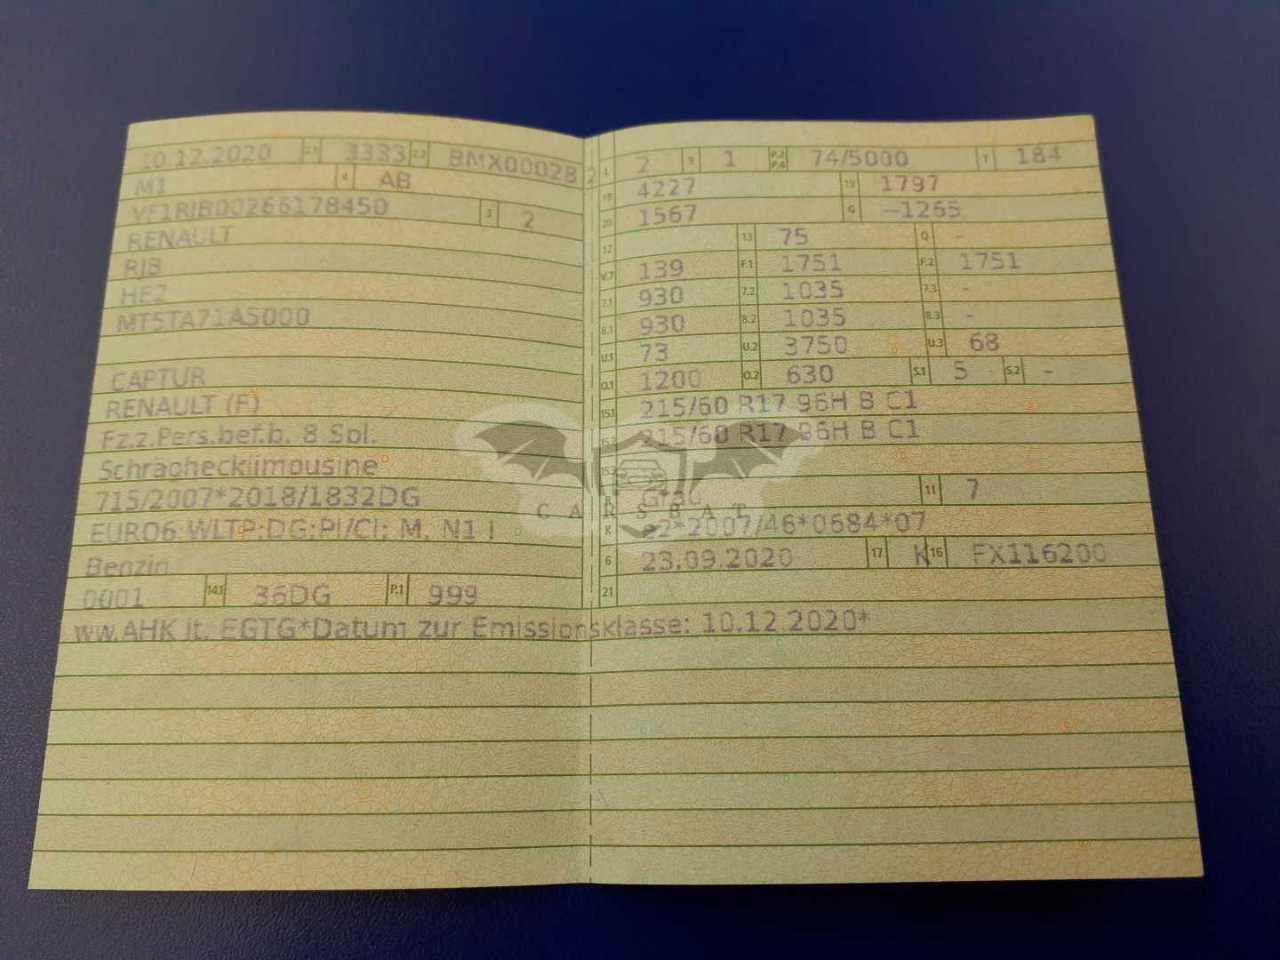 10.12.2020 2.1 3333 2.2 BMX00002B 2
M1 4 AB
VF1RJB00266178450 3 2
RENAULT
RJB
HE2
MT5TA71A5000
CAPTUR
RENAULT (F)
Fz.z.Pers.bef.b. 8 Spl.
Schräghecklimousine
715/2007*2018/1832DG
EURO6 WLTP;DG;PI/CI; M, N1 I
Benzin
0001 14.1 36DG P.1 999
L 2 9 1 P.2 P.4 74/5000 T 184
18 4227 19 1797
20 1567 G —1265
12 13 75 Q -
V.7 139 F.1 1751 F.2 1751
7.1 930 7.2 1035 7.3 -
8.1 930 8.2 1035 8.3 -
U.1 73 U.2 3750 U.3 68
O.1 1200 O.2 630 S.1 5 S.2 -
15.1 215/60 R17 96H B C1
15.2 215/60 R17 96H B C1
15.3
R 11 7
K e2*2007/46*0684*07
6 23.09.2020 17 K 16 FX116200
21
ww.AHK lt. EGTG*Datum zur Emissionsklasse: 10.12.2020*
CARSBAT